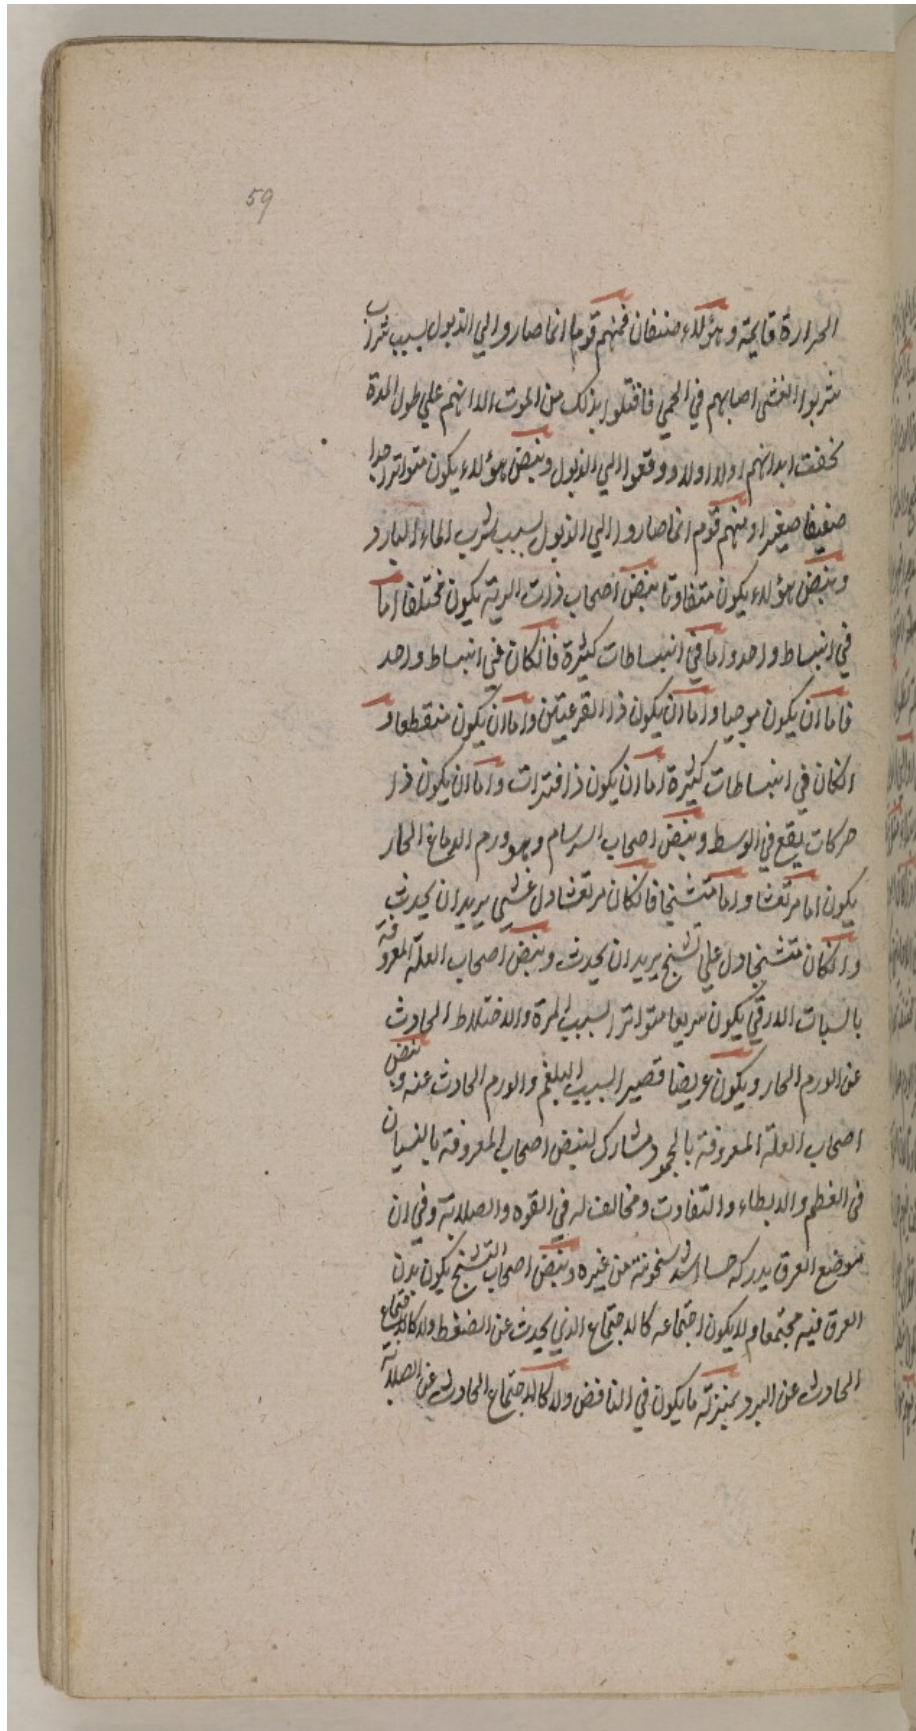 59
الحرارة قايمة وهؤلاء صنفان فمنهم قوما انما صاروا الي الذبول بسبب شراب
شربوا الغشي اصابهم في الحمي فافتلوا بذلك من الموت الا انهم علي طول المدة
نحفت ابدانهم اولا اولا ووقعوا الي الذبول ونبض هؤلاء يكون متواترا جدا
ضعيفا صغيرا ومنهم قوم انما صاروا الي الذبول بسبب شرب الماء البارد
ونبض هؤلاء يكون متفاوتا نبض اصحاب ذات الرية يكون مختلفا اما
في انبساط واحد واما في انبساطات كثيرة فانكان في انبساط واحد
فاما ان يكون موجيا واما ان يكون ذا القرعتين واما ان يكون منقطعا و
انكان في انبساطات كثيرة اما ان يكون ذا فترات واما ان يكون ذا
حركات يقع في الوسط ونبض اصحاب السرسام وهو ورم الدماغ الحار
يكون اما مرتعشا واما متشنجا فانكان مرتعشا دل غشي يريد ان يحدث
وانكان متشنجا دل علي تشنج يريد ان يحدث ونبض اصحاب العلة المعروفة
بالسبات الارقي يكون سريعا متواترا لسبب المرة والاختلاط الحادث
عن الورم الحار ويكون عريضا قصيرا لسبب البلغم والورم الحادث عنه ونبض
اصحاب العلة المعروفة بالجمود مشارك لنبض اصحاب المعروفة بالنسيان
في العظم والابطاء والتفاوت ومخالف له في القوه والصلابة وفي ان
موضع العرق يدركه حسا اشد سخونة من غيره ونبض اصحاب التشنج يكون بدن
العرق فيه مجتمعا م لا يكون اجتماعه كالاجتماع الذي يحدث عن الضغط ولا كالاجتماع
الحادث عن البرد بمنزلة ما يكون في النافض ولا كالاجتماع الحادث عن الصلابة